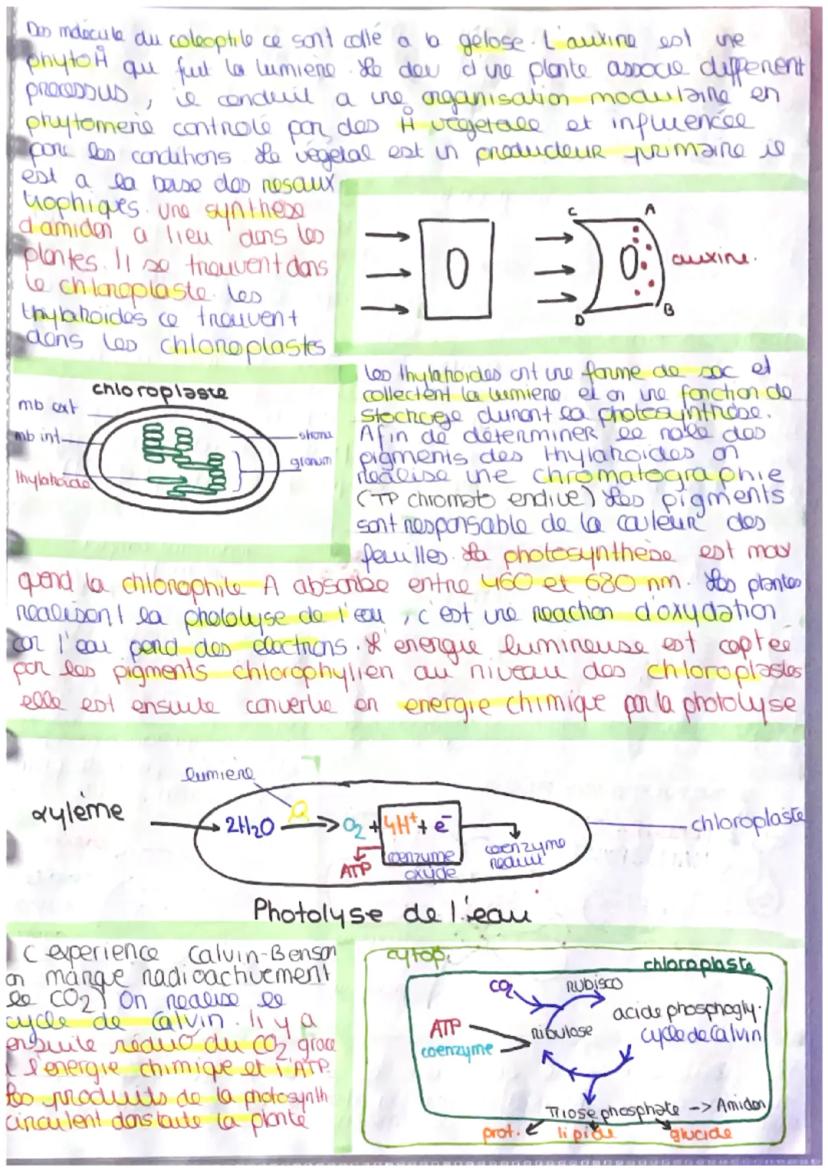 Des molecule du coleoptile ce sont collé a la gélose. L'auxine est une
phytoH qui fuit la lumière. Le dev d'une plante associe different
processus, il conduit a une organisation modulaire en
phytomerie controlé par des H végétale et influencée
par les conditions. Le végétal est un producteur primaire il
est a la base des resaux
trophiques. une synthèse
d'amidon a lieu dans les
plantes. Il se trouvent dans
le chloroplaste. Les
thylahoides ce trouvent
dans les chloroplastes
C A
auxine.
D B
chloroplaste
mb ext
mb int
thylahoide
stroma
granum
Les thylahoides ont une forme de sac et
collectent la lumiere et on une fonction de
stockage durant la photosynthèse.
Afin de déterminer le role des
pigments des thylahoides on
réalise une chromatographie
(TP chromato endive) Les pigments
sont responsable de la couleur des
feuilles. La photosynthèse est max
quand la chlorophile A absorbe entre 460 et 680 nm. Les plantes
realisent la photolyse de l'eau, c'est une reaction d'oxydation
car l'eau perd des electrons. L'energie lumineuse est captée
par les pigments chlorophylien au niveau des chloroplastes
elle est ensuite convertie en energie chimique par la photolyse
lumiere
xylème
2H2O → O2 + 4H+ + e-
chloroplaste
ATP
coenzyme
oxyde
coenzyme
reduit
Photolyse de l'eau
experience Calvin-Benson
on marque radioactivement
le CO2) On realise le
cycle de Calvin. Il y a
ensuite réduc du CO2 grace
l'energie chimique et l'ATP.
Les produits de la photosynth
circulent dans toute la plante
cytop.
chloroplaste
CO2
rubisco
acide phosphogly.
ATP
coenzyme
ribulose
cycle de calvin
Triose phosphate -> Amidon
prot. lipide glucide